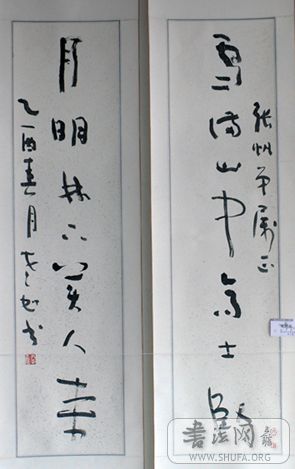 雪满山中高士卧
张帆弟属正
月明林下美人来
乙酉春月
书
书法网
WWW.SHUFA.ORG